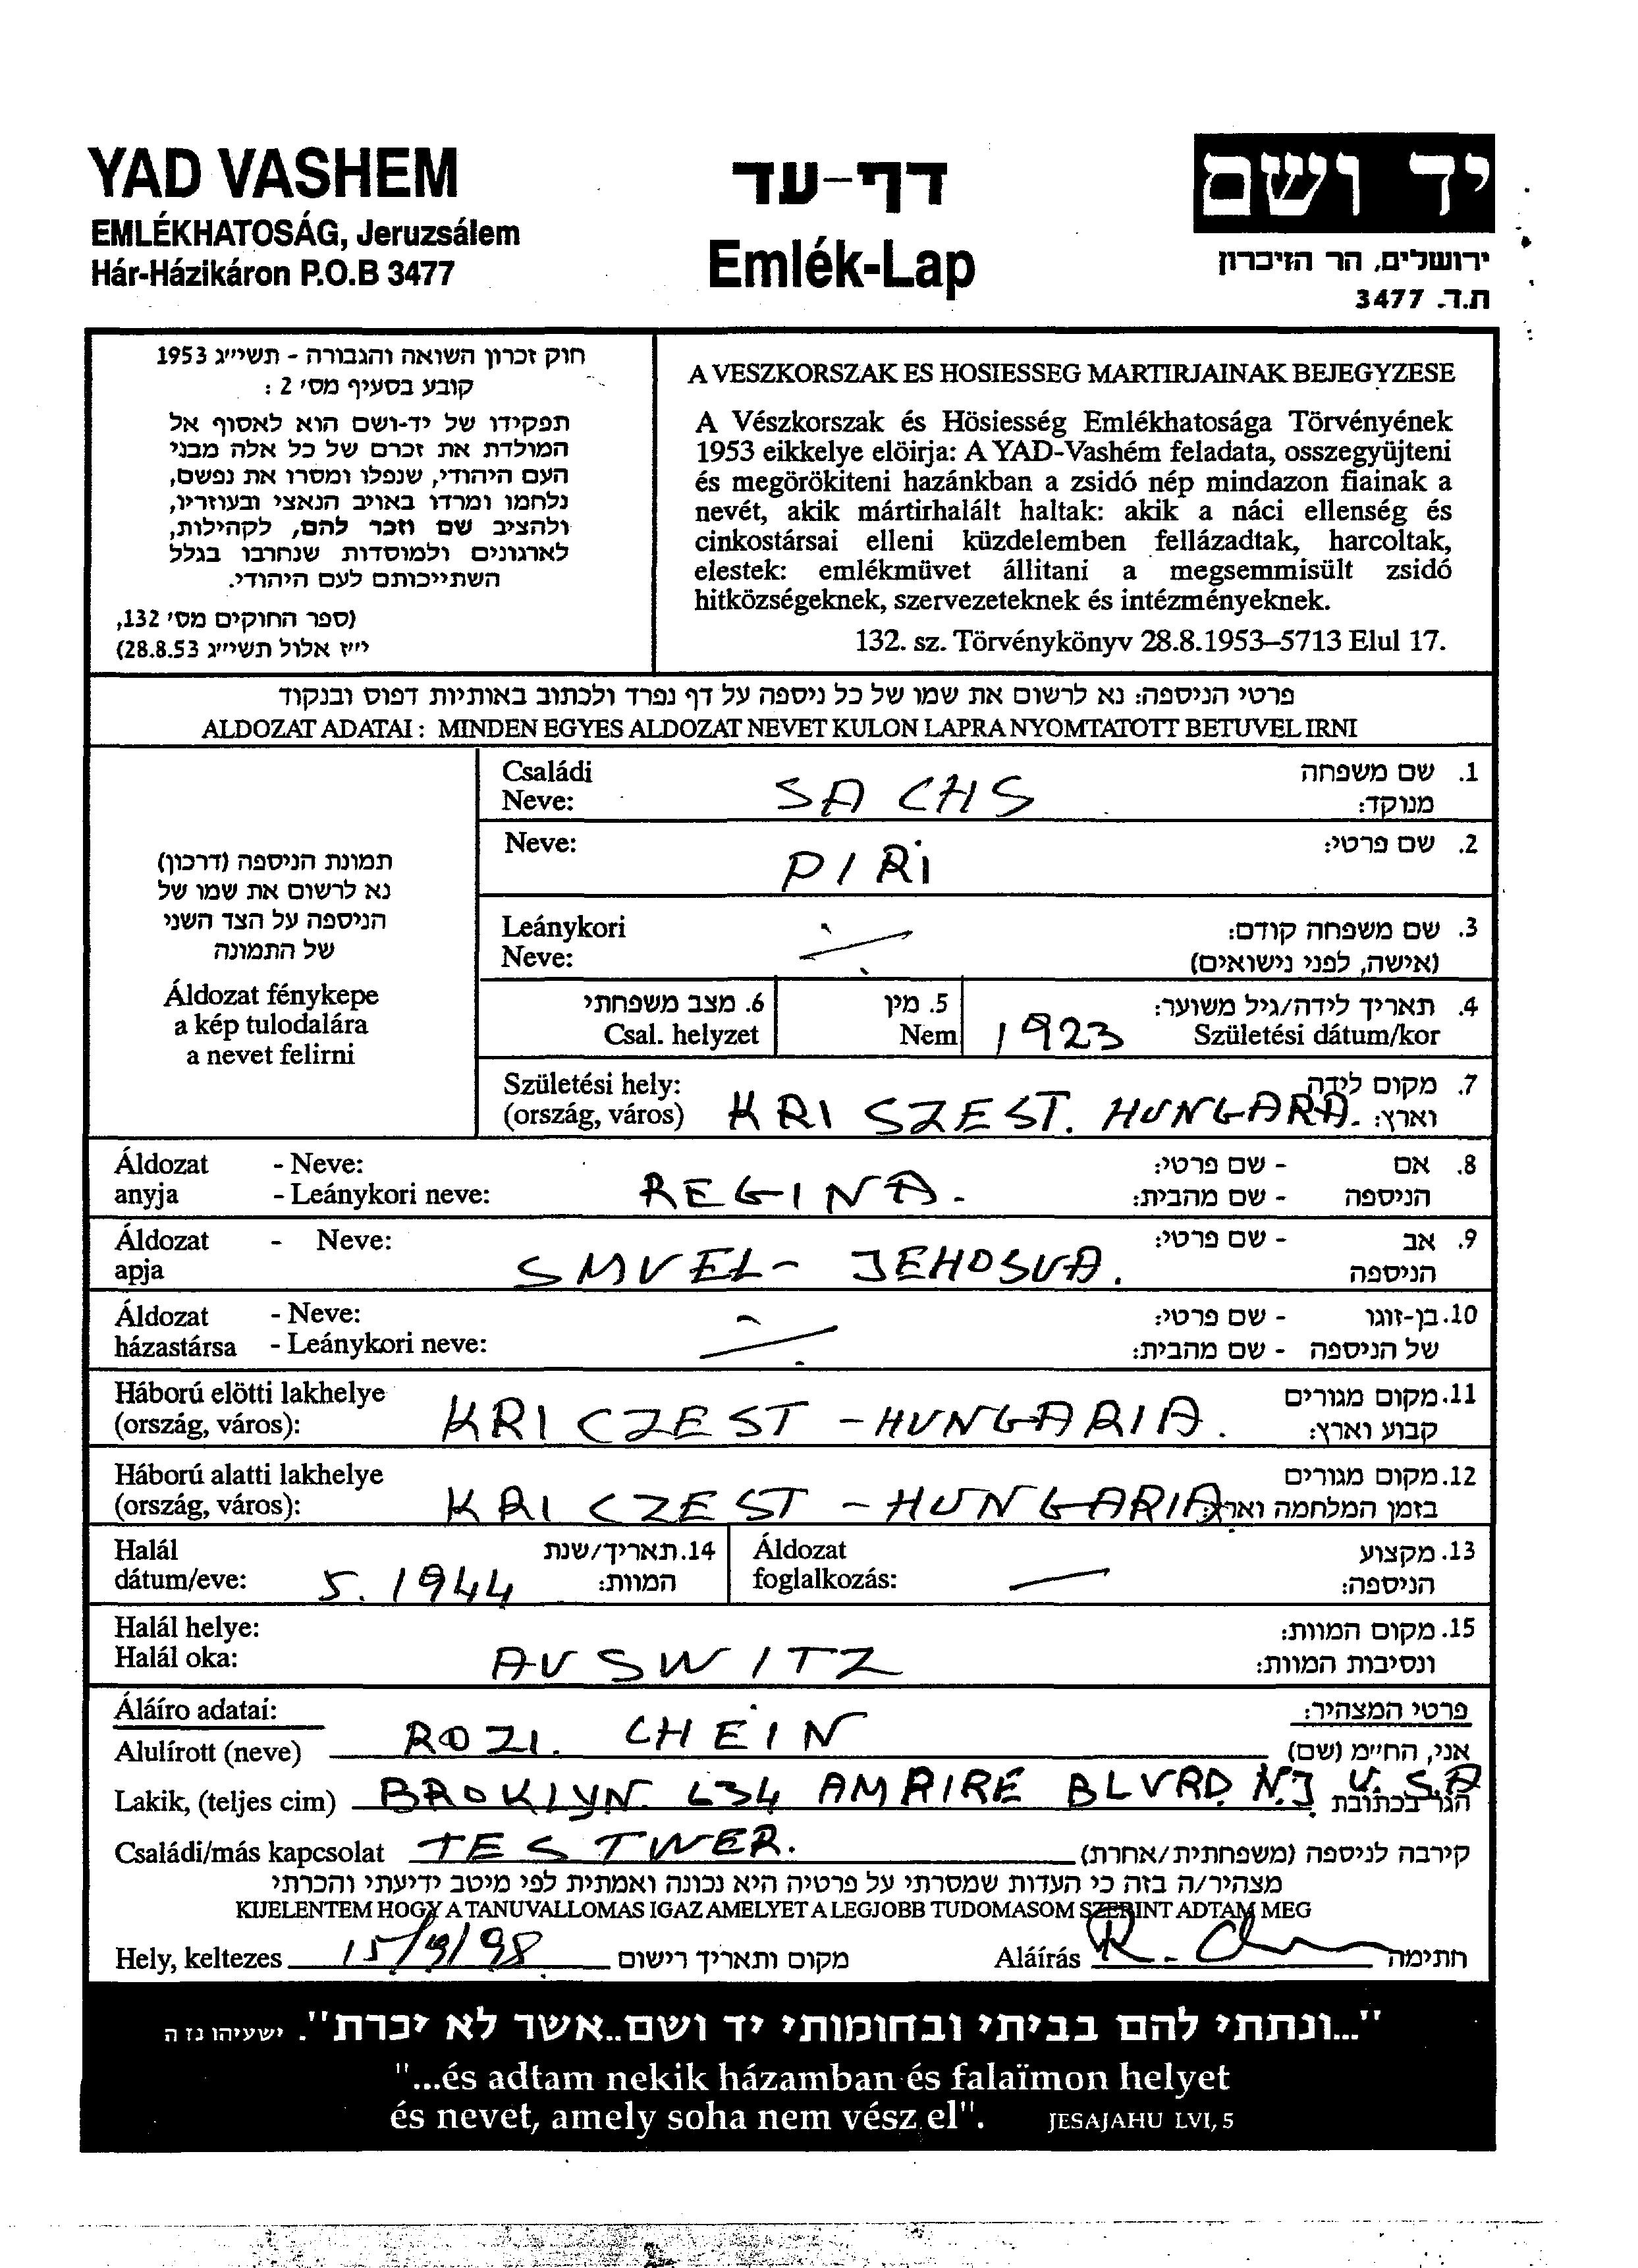 YAD VASHEM
EMLÉKHATOSÁG, Jeruzsálem
Hár-Házikáron P.O.B 3477
דף-עד
Emlék-Lap
יד ושם
ירושלים, הר הזיכרון
ת.ד. 3477
חוק זכרון השואה והגבורה - תשי״ג 1953
קובע בסעיף מס׳ 2 :
תפקידו של יד-ושם הוא לאסוף אל
המולדת את זכרם של כל אלה מבני
העם היהודי, שנפלו ומסרו את נפשם,
נלחמו ומרדו באויב הנאצי ובעוזריו,
ולהציב שם וזכר להם, לקהילות,
לארגונים ולמוסדות שנחרבו בגלל
השתייכותם לעם היהודי.
(ספר החוקים מס׳ 132,
י״ז אלול תשי״ג 28.8.53)
A VESZKORSZAK ES HOSIESSEG MARTIRJAINAK BEJEGYZESE
A Vészkorszak és Hösiesség Emlékhatosága Törvényének
1953 eikkelye elöirja: A YAD-Vashém feladata, osszegyüjteni
és megörökiteni hazánkban a zsidó nép mindazon fiainak a
nevét, akik mártirhalált haltak: akik a náci ellenség és
cinkostársai elleni küzdelemben fellázadtak, harcoltak,
elestek: emlékmüvet állitani a megsemmisült zsidó
hitközségeknek, szervezeteknek és intézményeknek.
132. sz. Törvénykönyv 28.8.1953–5713 Elul 17.
פרטי הניספה: נא לרשום את שמו של כל ניספה על דף נפרד ולכתוב באותיות דפוס ובנקוד
ALDOZAT ADATAI : MINDEN EGYES ALDOZAT NEVET KULON LAPRA NYOMTATOTT BETUVEL IRNI
תמונת הניספה (דרכון)
נא לרשום את שמו של
הניספה על הצד השני
של התמונה
Áldozat fénykepe
a kép tulodalára
a nevet felirni
Családi
Neve:
SACHS
1. שם משפחה
מנוקד:
Neve:
PIRI
2. שם פרטי:
Leánykori
Neve:
3. שם משפחה קודם:
(אישה, לפני נישואים)
6. מצב משפחתי
Csal. helyzet
5. מין
Nem
1923
4. תאריך לידה/גיל משוער:
Születési dátum/kor
Születési hely:
(ország, város)
KRISZEST. HUNGARA.
7. מקום לידה
וארץ:
Áldozat - Neve:
anyja - Leánykori neve:
REGINA.
8. אם - שם פרטי:
הניספה - שם מהבית:
Áldozat - Neve:
apja
SMUEL - JEHOSUA.
9. אב - שם פרטי:
הניספה
Áldozat - Neve:
házastársa - Leánykori neve:
10. בן-זוגו - שם פרטי:
של הניספה - שם מהבית:
Háború elötti lakhelye
(ország, város):
KRICZEST - HUNGARIA.
11. מקום מגורים
קבוע וארץ:
Háború alatti lakhelye
(ország, város):
KRICZEST - HUNGARIA
12. מקום מגורים
בזמן המלחמה וארץ:
Halál
dátum/eve:
5. 1944
14. תאריך/שנת
המוות:
Áldozat
foglalkozás:
13. מקצוע
הניספה:
Halál helye:
Halál oka:
AUSWITZ
15. מקום המוות:
ונסיבות המוות:
Áláíro adatai:
פרטי המצהיר:
Alulírott (neve) ROZI. CHEIN אני, החי״מ (שם)
Lakik, (teljes cim) BROKLYN 634 AMPIRE BLVRD. N.J U.S.A הגר בכתובת
Családi/más kapcsolat TESTWER. קירבה לניספה (משפחתית/אחרת)
מצהיר/ה בזה כי העדות שמסרתי על פרטיה היא נכונה ואמתית לפי מיטב ידיעתי והכרתי
KIJELENTEM HOGY A TANUVALLOMAS IGAZ AMELYET A LEGJOBB TUDOMASOM SZERINT ADTAM MEG
Hely, keltezes 15/9/98 מקום ותאריך רישום Aláírás חתימה
"...ונתתי להם בביתי ובחומותי יד ושם..אשר לא יכרת". ישעיהו נז ה
"...és adtam nekik házamban és falaïmon helyet
és nevet, amely soha nem vész el". JESAJAHU LVI, 5